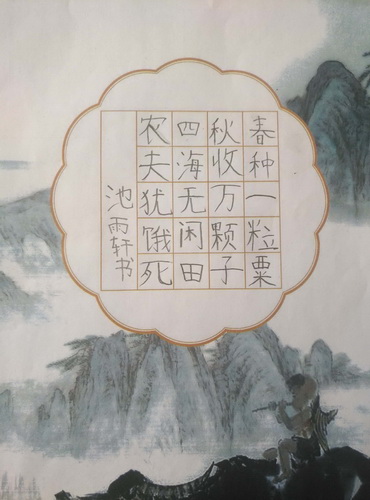 春种一粒粟
秋收万颗子
四海无闲田
农夫犹饿死
池雨轩书